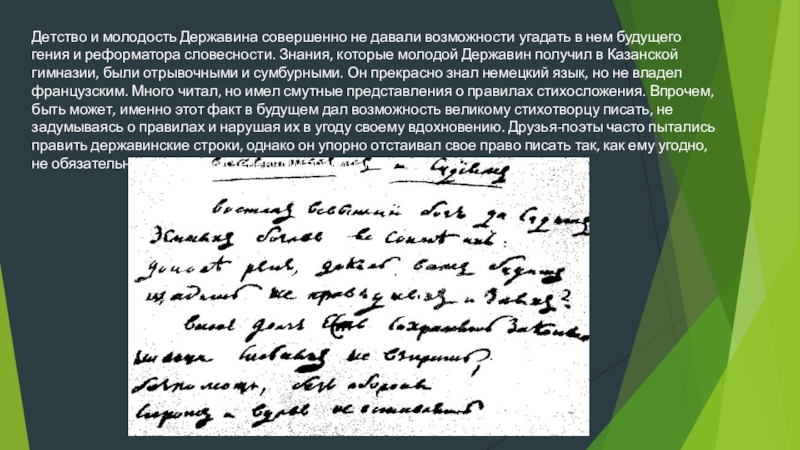 Детство и молодость Державина совершенно не давали возможности угадать в нем будущего
гения и реформатора словесности. Знания, которые молодой Державин получил в Казанской
гимназии, были отрывочными и сумбурными. Он прекрасно знал немецкий язык, но не владел
французским. Много читал, но имел смутные представления о правилах стихосложения. Впрочем,
быть может, именно этот факт в будущем дал возможность великому стихотворцу писать, не
задумываясь о правилах и нарушая их в угоду своему вдохновению. Друзья-поэты часто пытались
править державинские строки, однако он упорно отстаивал свое право писать так, как ему угодно,
не обязательн
и
восталъ всевышнiй богъ да судитъ
Земныхъ боговъ во сонмѣ ихъ:
доколѣ рекъ, доколь вамъ будетъ
щадить не праведныхъ и злыхъ?
вашъ долгъ Есть сохранять законы
на лица не взирать,
безъ обороны
сиротъ и вдовъ не оставлять